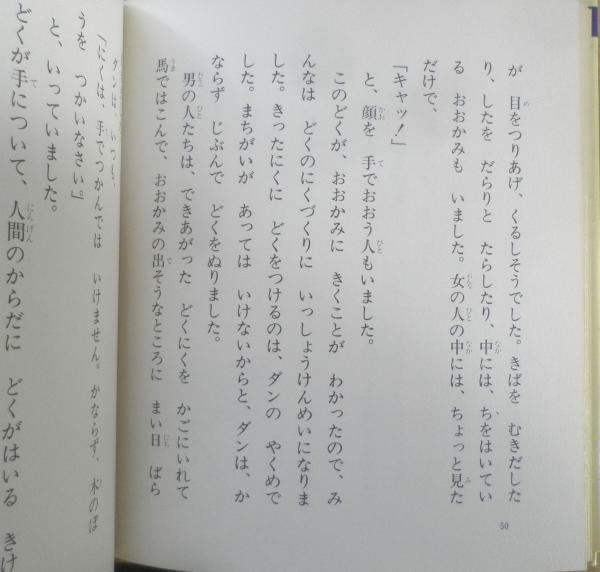 が　目をつりあげ、くるしそうでした。きばを　むきだした
り、したを　だらりと　たらしたり、中には、ちをはいてい
る　おおかみも　いました。女の人の中には、ちょっと見た
だけで、
「キャッ！」
と、顔を　手でおおう人もいました。
このどくが、おおかみに　きくことが　わかったので、み
んなは　どくのにくづくりに　いっしょうけんめいになりま
した。きったにくに　どくをつけるのは、ダンの　やくめで
した。まちがいが　あっては　いけないからと、ダンは、か
ならず　じぶんで　どくをぬりました。
男の人たちは、できあがった　どくにくを　かごにいれて
馬ではこんで、おおかみの出そうなところに　まい日　ばら
50
ダンは、いつも、
「にくは、手でつかんでは　いけません。かならず、木のぼ
うを　つかいなさい。」
と、いっていました。
どくが手について、人間のからだに　どくがはいる　きけ